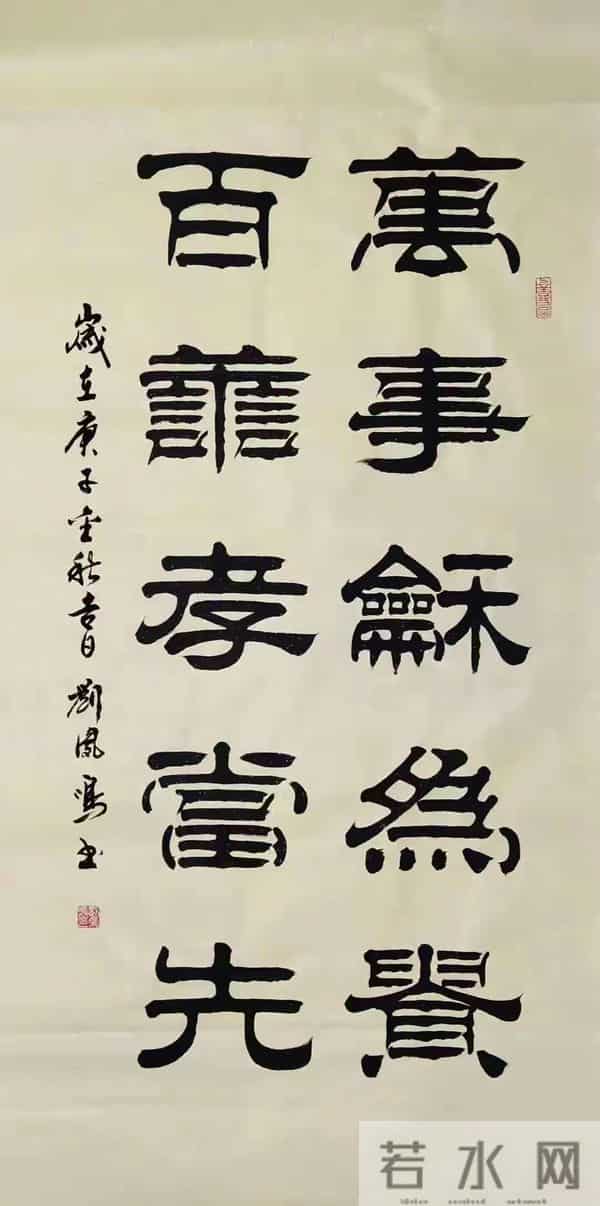 萬事龢為貴
百善孝當先
歲在庚子金秋吉日 劉鳳鳴书
若水网